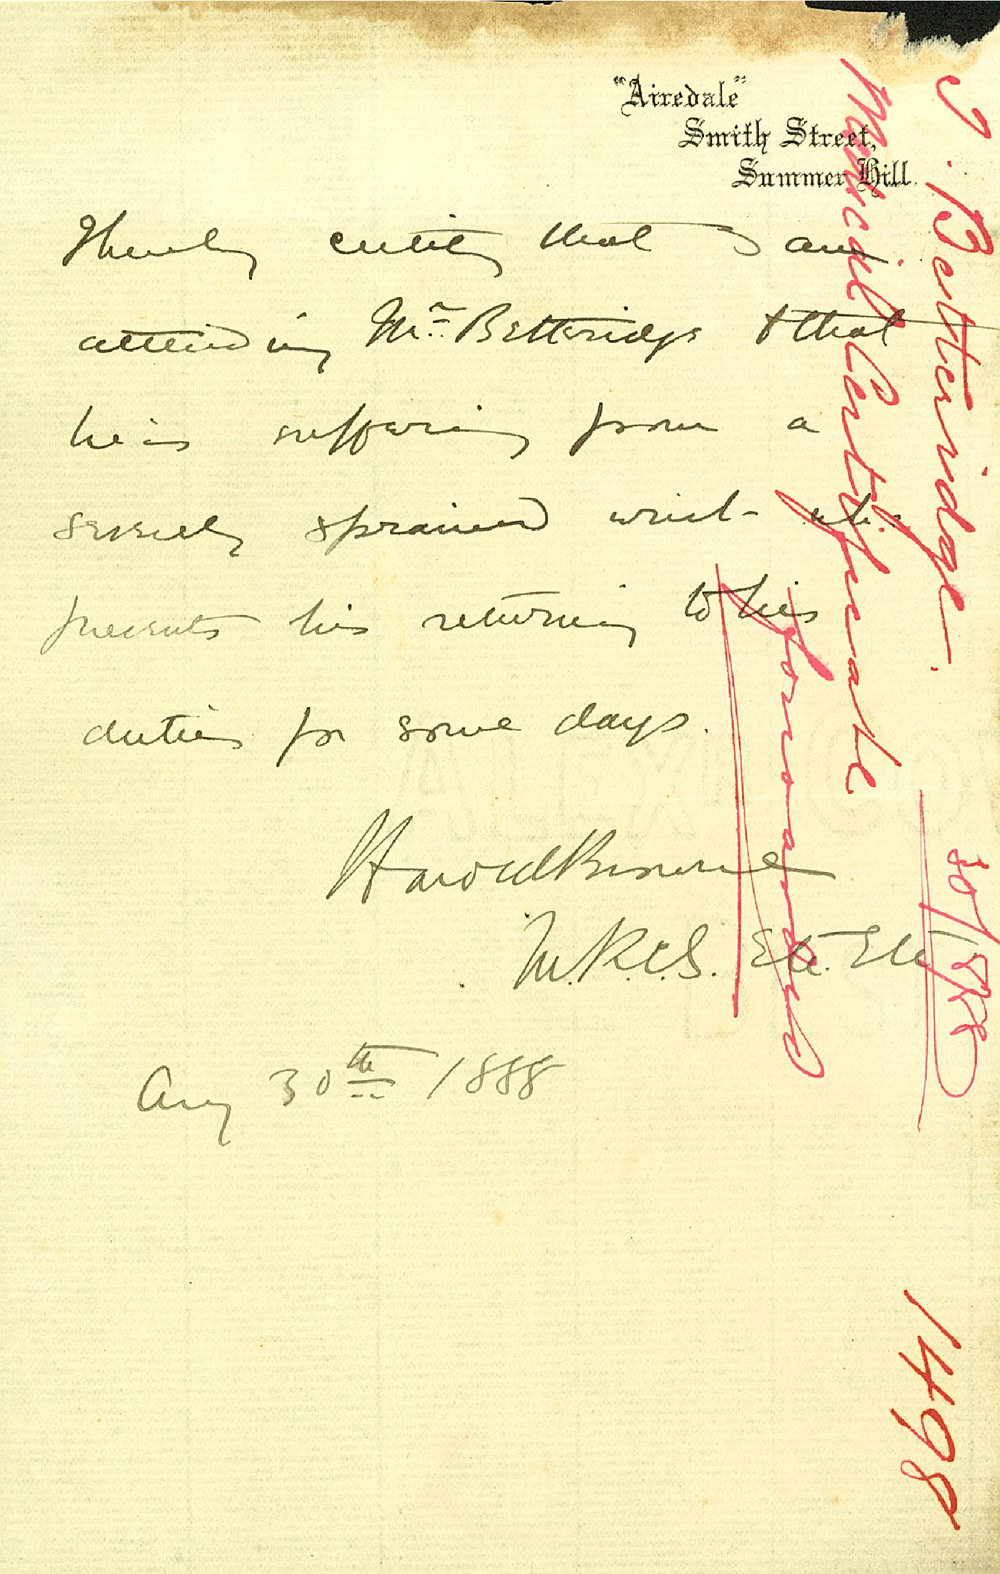 "Airedale"
Smith Street,
Summer Hill.
I hereby certify that I am
attending Mr. Betteridge & that
he is suffering from a
severely sprained wrist
prevents his returning to his
duties for some days.
Harold Browne
M.R.C.S. Etc. Etc
Aug 30th 1888
J. Betteridge.
Medical Certificate
forwarded
30/8/88
1498